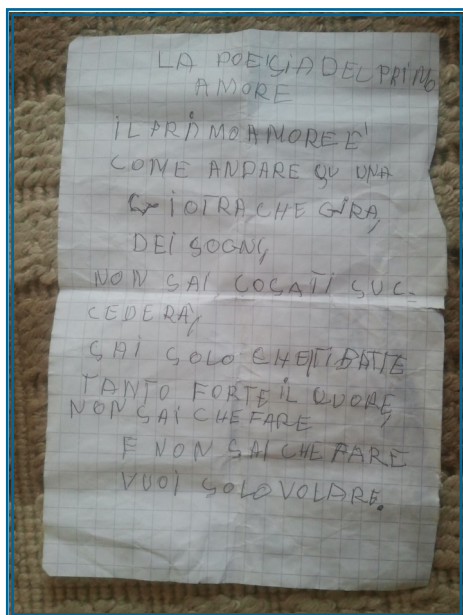 LA POESIA DEL PRIMO
AMORE
IL PRIMO AMORE E'
COME ANDARE SU UNA
GIOTRA CHE GIRA,
DEI SOGNI,
NON SAI COSA TI SUC=
CEDERA,
SAI SOLO CHE TI BATTE
TANTO FORTE IL QUORE,
NON SAI CHE FARE
E NON SAI CHE FARE
VUOI SOLO VOLARE.